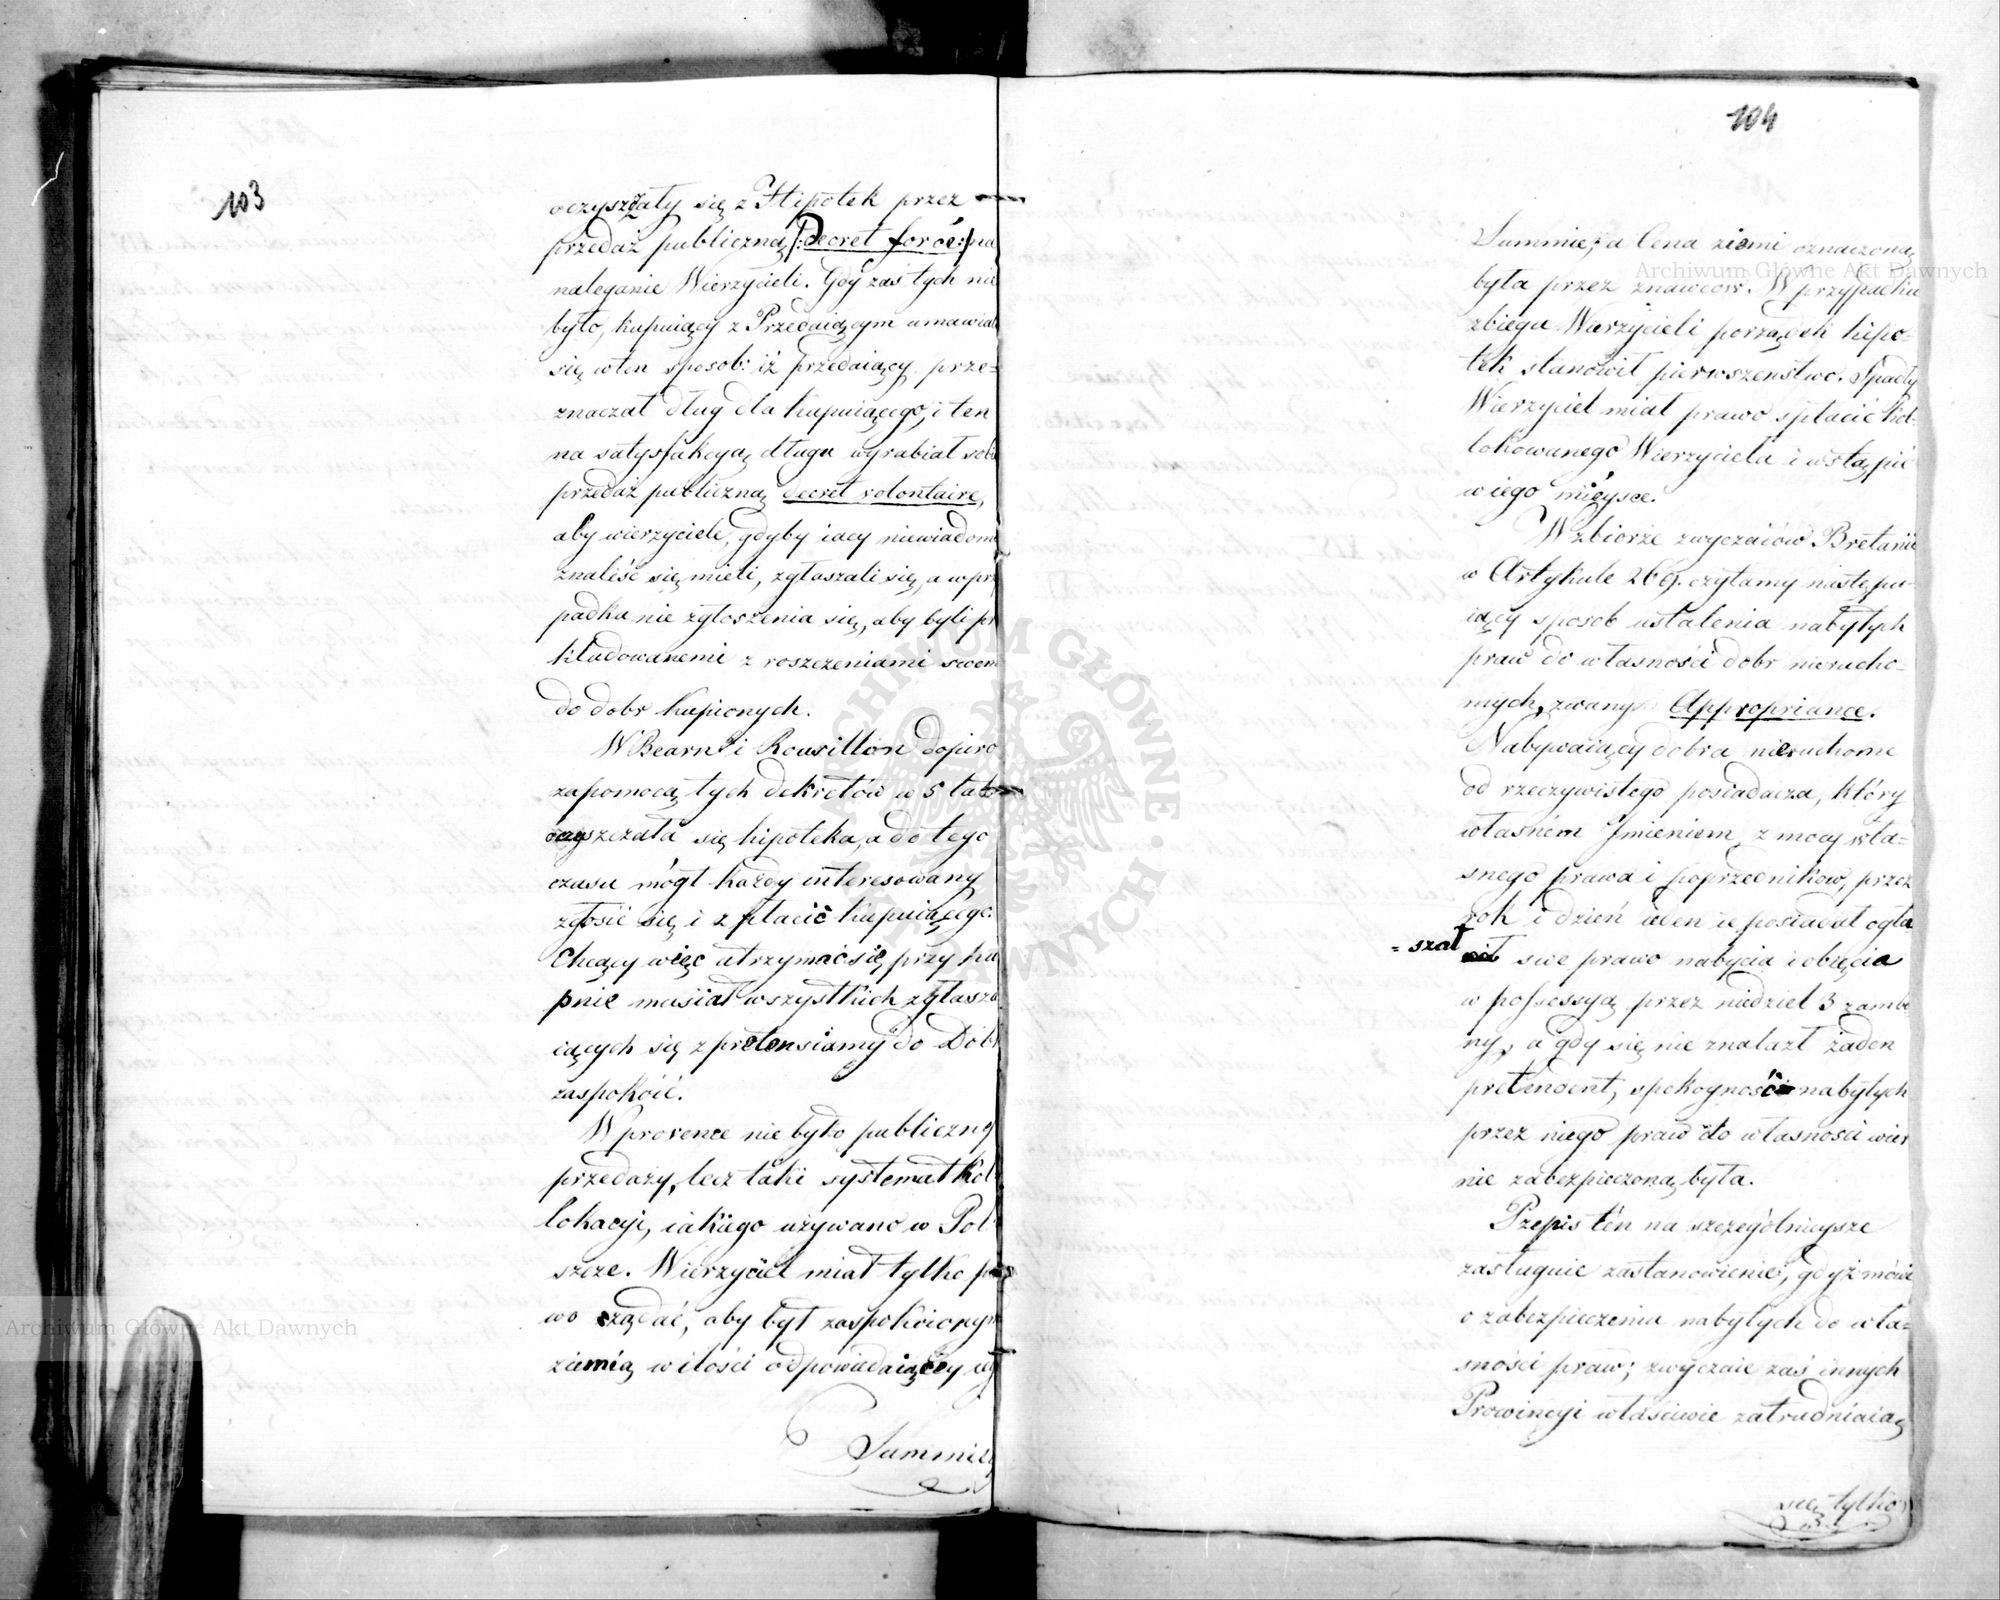 103
oczyszczały się z Hipotek przez
przedaż publiczną /:Decret forcé:/ na
naleganie Wierzycieli. Gdy zaś tych nie
było, kupuiący z Przedaiącym umawiał
się w ten sposob: iż przedaiący prze=
znaczał dług dla kupuiącego, i ten
na satysfakcyą długu wyrabiał sobie
przedaż publiczną decret volontaire,
aby wierzyciele, gdyby iacy niewiadomi
znaleść się mieli, zgłaszali się, a w przy
padku nie zgłoszenia się, aby byli pre
kludowanemi z roszczeniami swemi
do dobr kupionych.
W Bearn i Rousillon dopiro
zapomocą tych dekretów w 5 lat
oczyszczała się hipoteka, a do tego
czasu mógł każdy interesowany
zgłosić się i spłacić kupuiącego.
Chcący więc utrzymać się przy ku
pnie musiał wszystkich zgłasza
iących się z pretensiamy do Dobr
zaspokoić.
W provence nie było publiczney
przedaży, lecz taki systemat kol=
lokacyi, iakiego używano w Pol=
szcze. Wierzyciel miał tylko pra
wo rządać, aby był zaspokoionym
ziemią w ilości odpowiedaiącey iego
Summie,
104
Summie, a Cena ziemi oznaczoną
była przez znawcow. W przypadku
zbiegu Wierzycieli porządek hipo=
tek stanowił pierwszeństwo. Spadły
Wierzyciel miał prawo spłacić kol=
lokowanego Wierzyciela i wstąpić
w iego mieysce.
W zbiorze zwyczaiów Bretanii
w Artykule 269. czytamy nastepu=
iący sposob ustalenia nabytych
praw do własności dobr nierucho=
mych, zwany Appropriance.
Nabywaiący dobra nieruchome
od rzeczywistego posiadacza, który
własném Jmieniem, z mocy wła=
snego prawa i poprzednikow, przez
rok i dzień ieden ie posiadał ogła
=szał swe prawo nabycia i obięcia
w possessyą przez niedziel 3 z ambo
ny, a gdy się nie znalazł żaden
pretendent, spokoyność nabytych
przez niego praw do własności wier
nie zabezpieczoną była.
Przepis tén na szczególnieysze
zasługuie zastanowienie, gdyż mówi
o zabezpieczeniu nabytych do wła=
sności praw; zwyczaie zaś innych
Prowincyi właściwie zatrudniaią
się tylko
Archiwum Główne Akt Dawnych
Archiwum Główne Akt Dawnych
ARCHIWUM GŁÓWNE AKT DAWNYCH